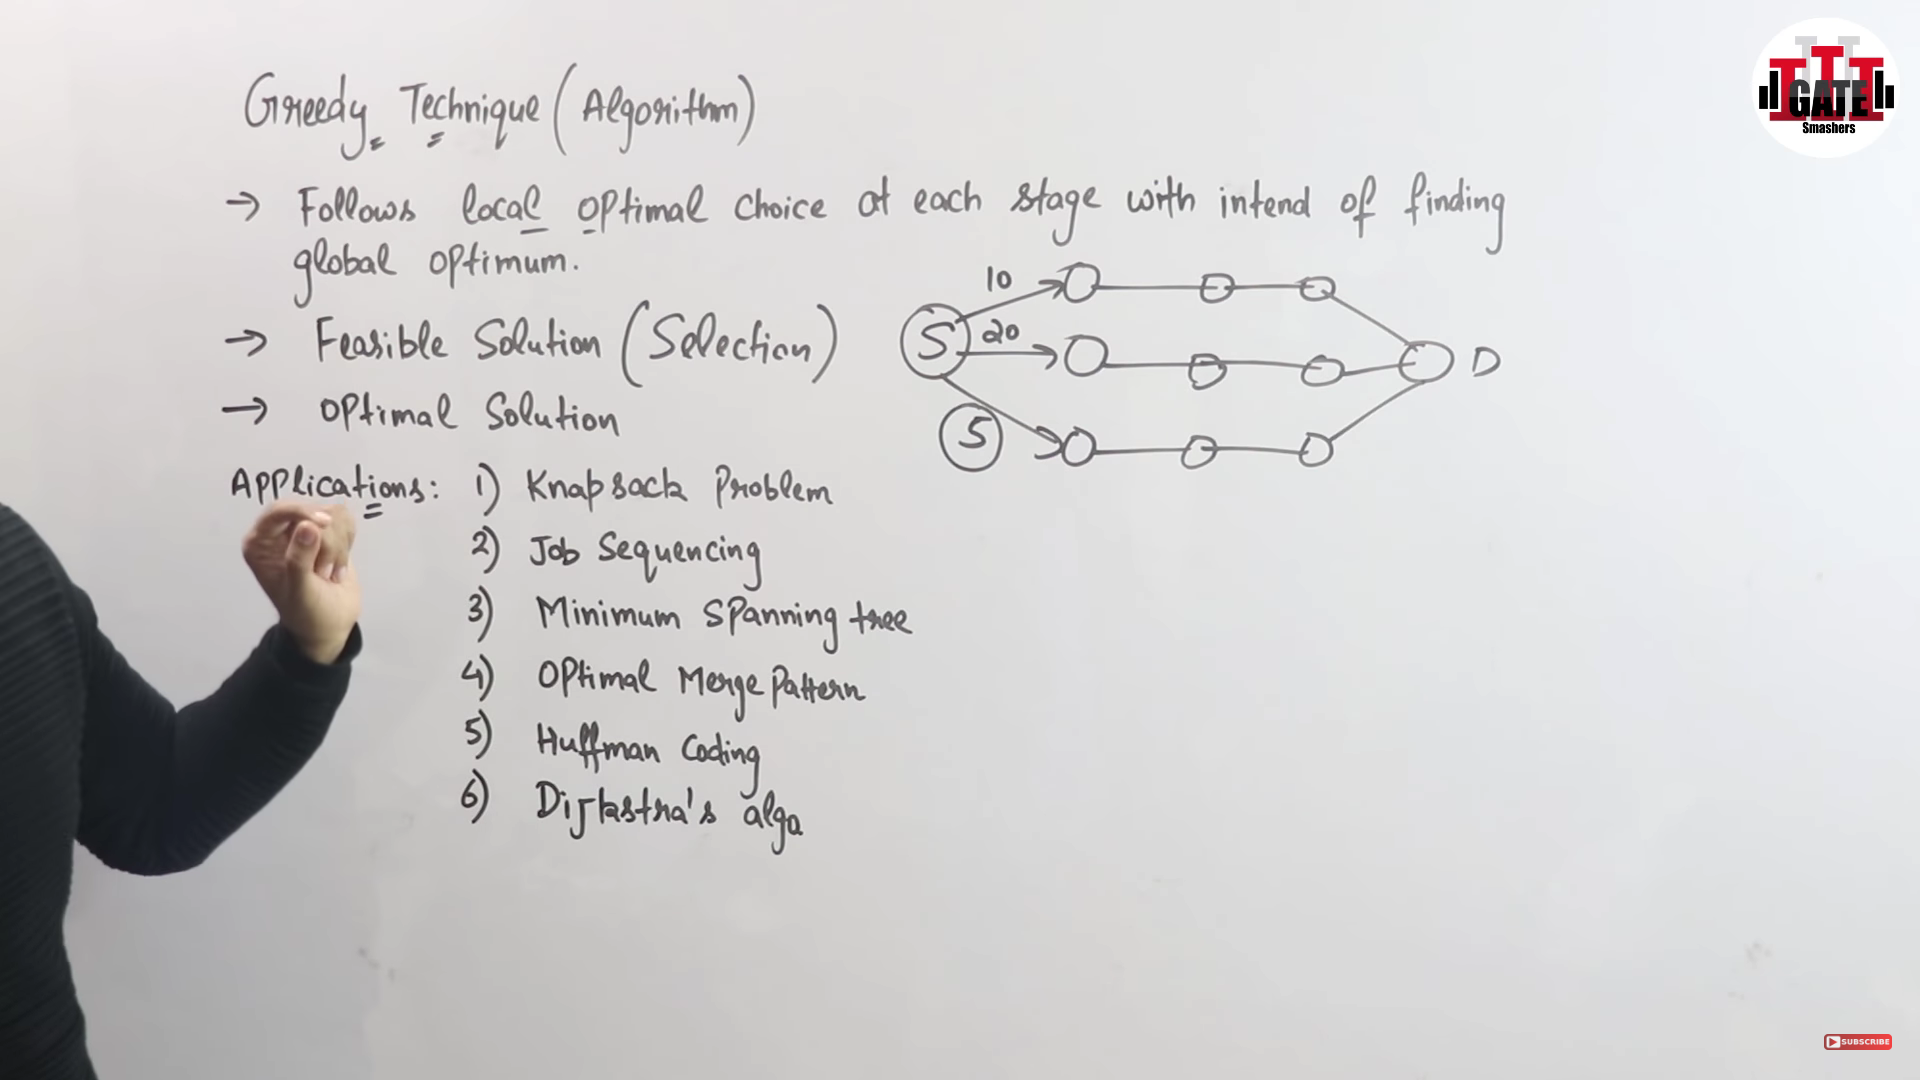 Greedy Technique (Algorithm)
→ Follows local optimal choice at each stage with intend of finding
global optimum.
→ Feasible Solution (Selection)
→ Optimal Solution
Applications: 1) Knapsack Problem
2) Job Sequencing
3) Minimum Spanning tree
4) Optimal Merge Pattern
5) Huffman Coding
6) Dijkstra's algo
10
S 20
5
D
GATE
Smashers
SUBSCRIBE